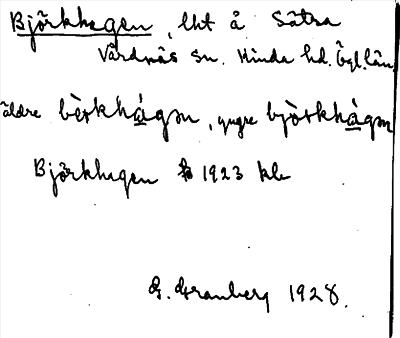 Björkhagen, lht å Sätra
Vårdnäs sn. Kinda hd. Ögl. län
äldre bèrkhágɘn, yngre bjòrkhágɘn
Björkhagen 1923 kb
G. Granberg 1928.